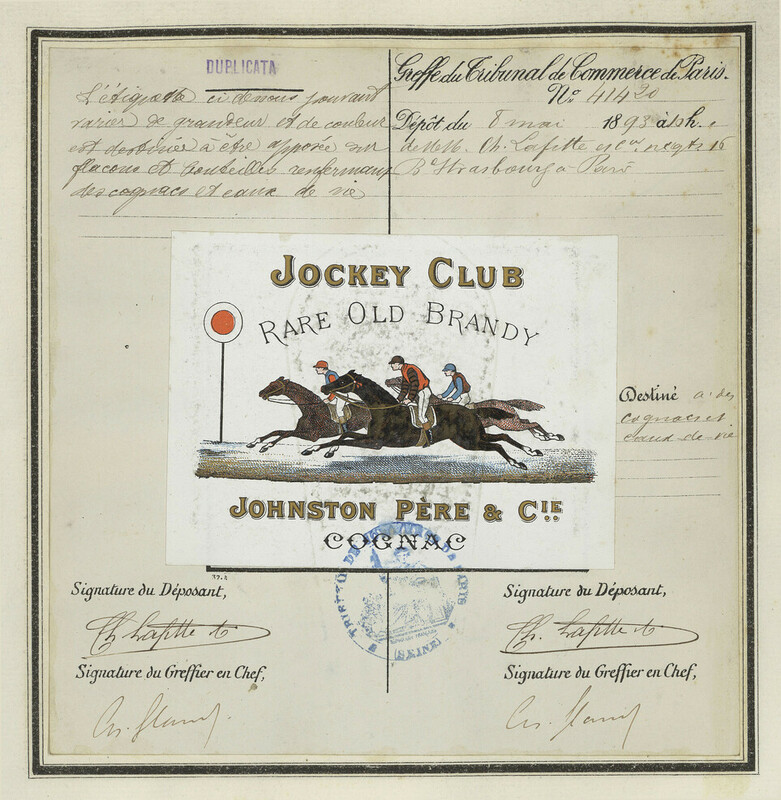 DUPLICATA
L'étiquette ci dessous pouvant
varier de grandeur et de couleur
est destinée à être apposée sur
flacons et bouteilles renfermant
des cognacs et eaux de vie
Greffe du Tribunal de Commerce de Paris.
No. 41420
Dépôt du 8 mai 1893 à h.
de MM. Ch. Lafitte et Cie négts 16
Bd Strasbourg à Paris
JOCKEY CLUB
RARE OLD BRANDY
JOHNSTON PÈRE & CIE
COGNAC
Destiné à des
cognacs et
eaux-de-vie
TRIBUNAL DE COMMERCE DE PARIS
(SEINE)
Signature du Déposant,
Ch. Lafitte
Signature du Greffier en Chef,
Signature du Déposant,
Ch. Lafitte
Signature du Greffier en Chef,